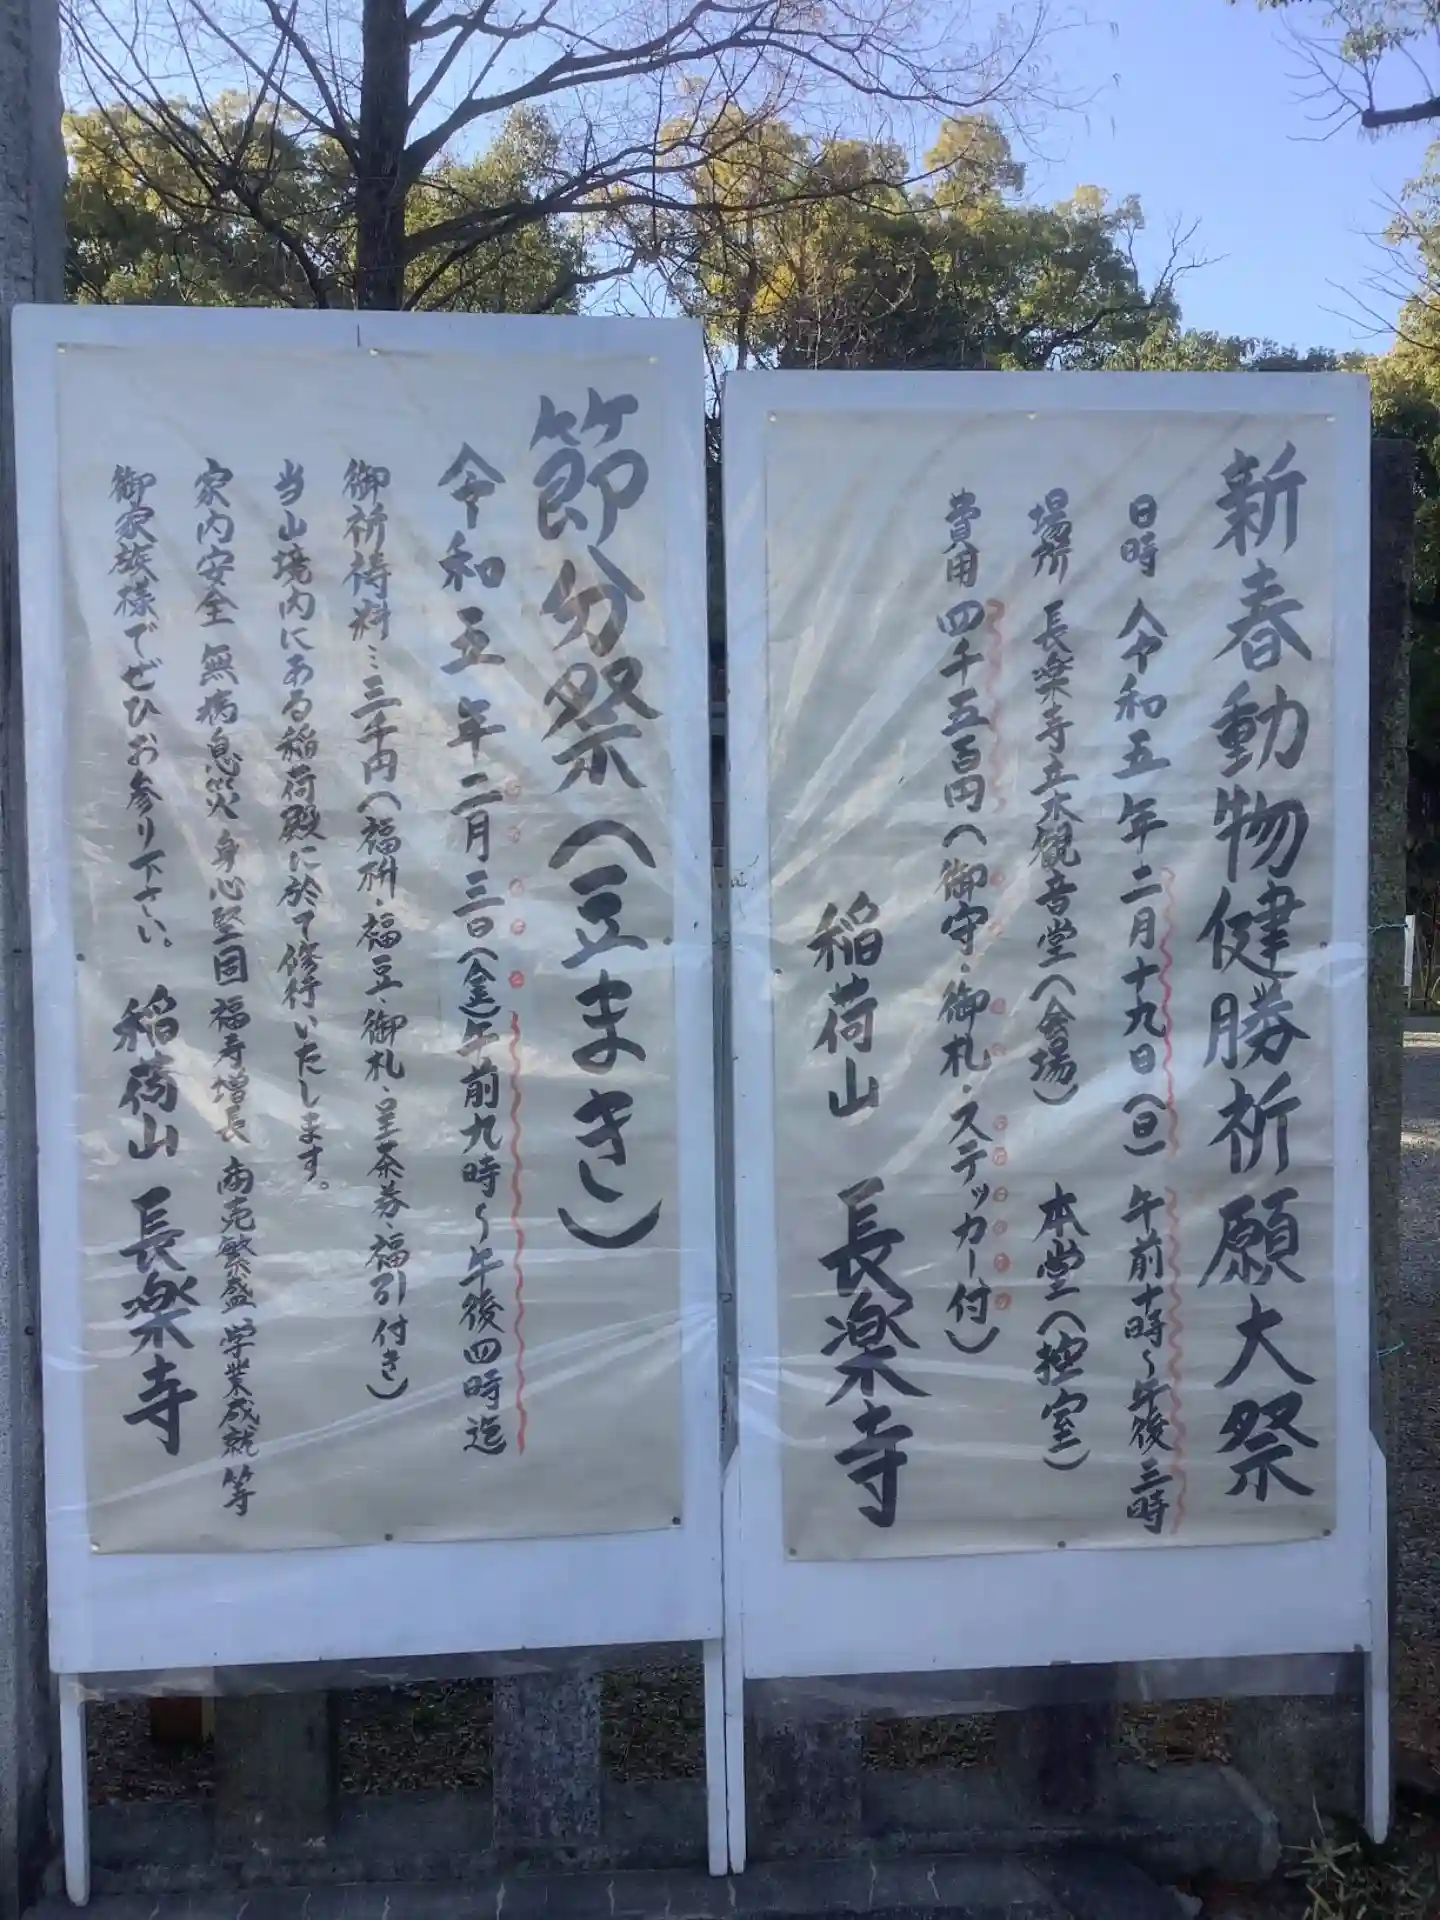 新春動物健勝祈願大祭
日時 令和五年二月十九日(日) 午前十時~午後三時
場所 長楽寺立木観音堂(会場) 本堂(控室)
費用 四千五百円(御守・御札・ステッカー付)
稲荷山 長楽寺
節分祭(豆まき)
令和五年二月三日(金)午前九時~午後四時迄
御祈祷料…三千円(福枡・福豆・御札・呈茶券・福引付き)
当山境内にある稲荷殿に於て修行いたします。
家内安全 無病息災 身心堅固 福寿増長 商売繁盛 学業成就等
御家族様でぜひお参り下さい。 稲荷山 長楽寺